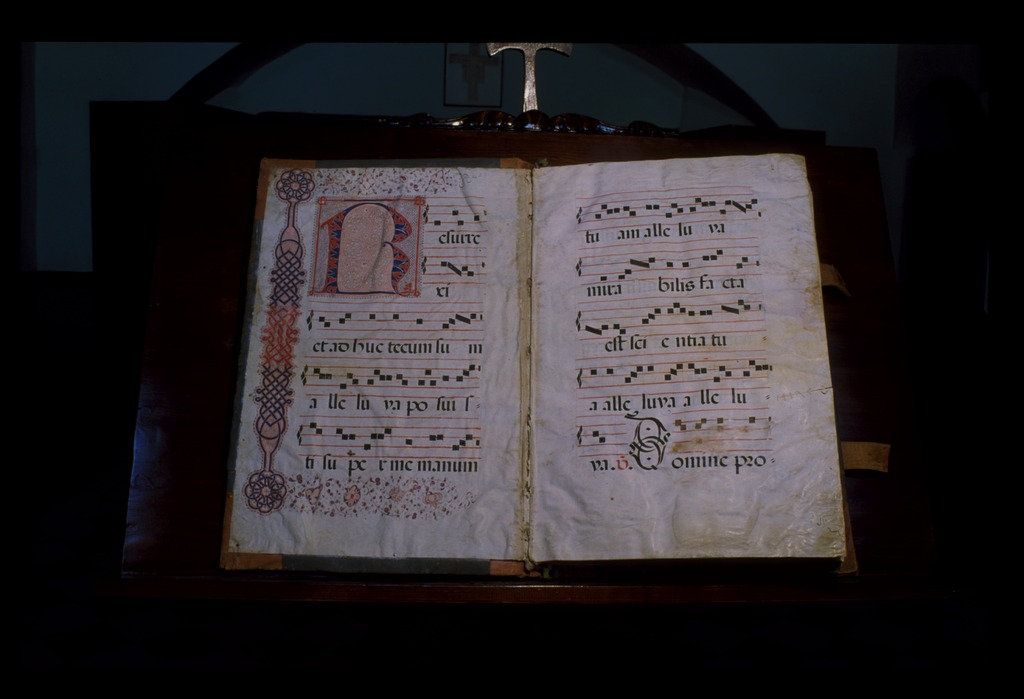 R esurre
xi
et ad huc tecum su m
a lle lu ya po sui s-
ti su pe r me manum
tu am alle lu ya
mira bilis fa cta
est sci e ntia tu
a alle luya a lle lu-
ya. V. Domine pro-